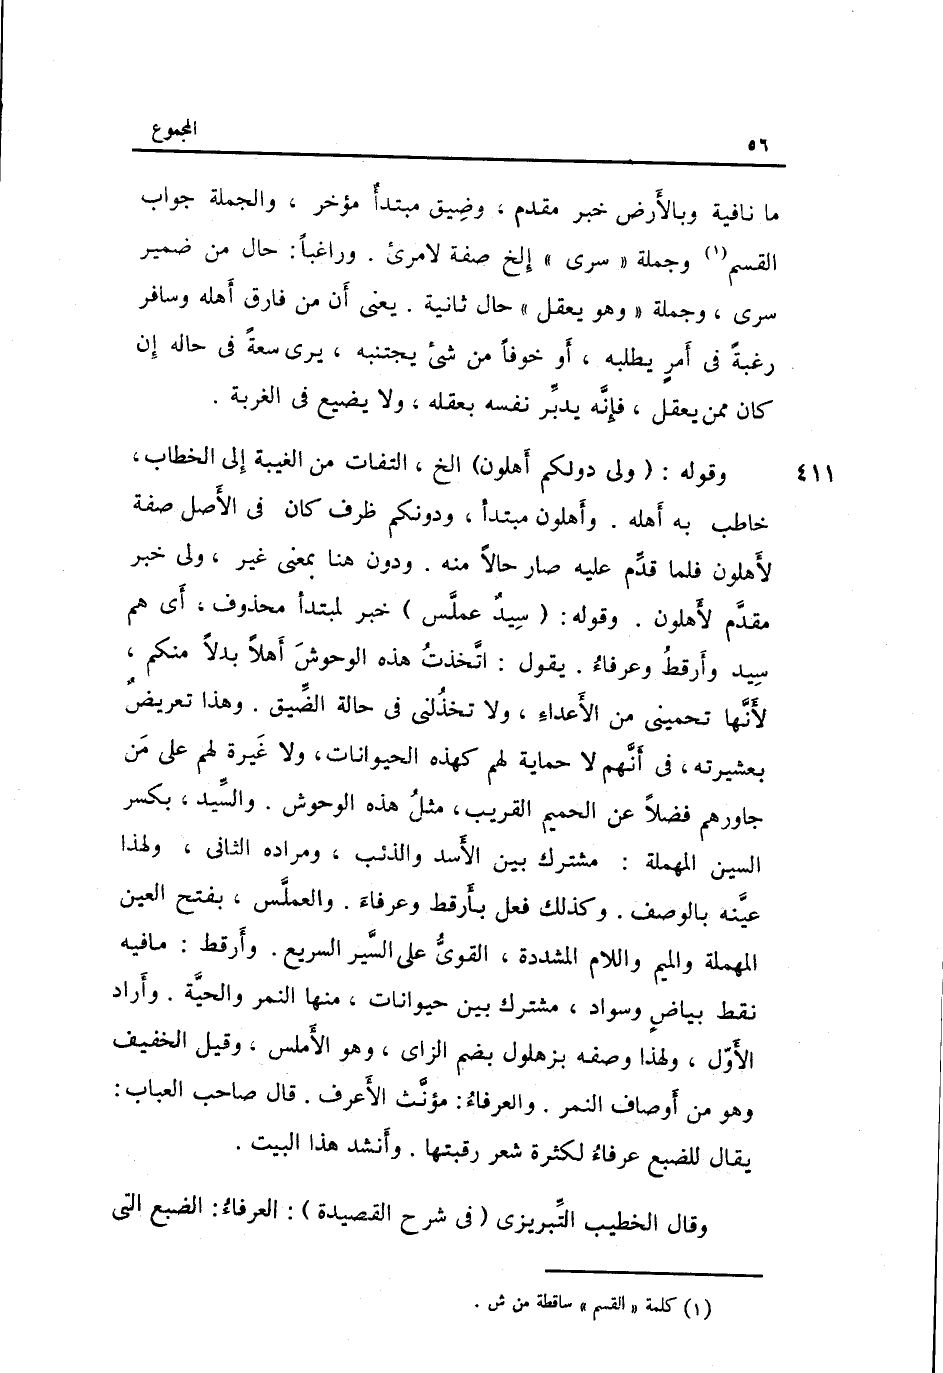 ٥٦
المجموع
ما نافية وبالأَرض خبر مقدم ، وضِيق مبتدأٌ مؤخر ، والجملة جواب
القسم(١) وجملة « سرى » إلخ صفة لامرئ . وراغباً : حال من ضمير
سرى ، وجملة « وهو يعقل » حال ثانية . يعنى أَن من فارق أَهله وسافر
رغبةً فى أَمرٍ يطلبه ، أَو خوفاً من شئ يجتنبه ، يرى سعةً فى حاله إن
كان ممن يعقل ، فإنَّه يدبِّر نفسه بعقله ، ولا يضيع فى الغربة .
٤١١
وقوله : ( ولى دولكم أَهلون) الخ ، التفات من الغيبة إلى الخطاب ،
خاطب به أَهله . وأَهلون مبتدأ ، ودونكم ظرف كان فى الأَصل صفة
لأَهلون فلما قدِّم عليه صار حالاً منه . ودون هنا بمعنى غير ، ولى خبر
مقدَّم لأَهلون . وقوله : ( سِيدٌ عملَّس ) خبر لمبتدأ محذوف ، أَى هم
سِيد وأَرقطُ وعرفاءُ . يقول : اتَّخذتُ هذه الوحوشَ أَهلاً بدلاً منكم ،
لأَنَّها تحمينى من الأَعداءِ ، ولا تخذُلنى فى حالة الضِّيق . وهذا تعريضٌ
بعشيرته ، فى أَنَّهم لا حماية لهم كهذه الحيوانات ، ولا غَيرة لهم على مَن
جاورهم فضلاً عن الحميم القريب ، مثلُ هذه الوحوش . والسِّيد ، بكسر
السين المهملة : مشترك بين الأَسد والذئب ، ومراده الثانى ، ولهذا
عيَّنه بالوصف . وكذلك فعل بأَرقط وعرفاءَ . والعملَّس ، بفتح العين
المهملة والميم واللام المشددة ، القوىُّ على السَّير السريع . وأَرقط : مافيه
نقط بياضٍ وسواد ، مشترك بين حيوانات ، منها النمر والحيَّة . وأَراد
الأَوّل ، ولهذا وصفه بزهلول بضم الزاى ، وهو الأَملس ، وقيل الخفيف
وهو من أَوصاف النمر . والعرفاءُ : مؤنَّث الأَعرف . قال صاحب العباب :
يقال للضبع عرفاءُ لكثرة شعر رقبتها . وأَنشد هذا البيت .
وقال الخطيب التِّبريزى ( فى شرح القصيدة ) : العرفاءُ : الضبع التى
(١) كلمة « القسم » ساقطة من ش .